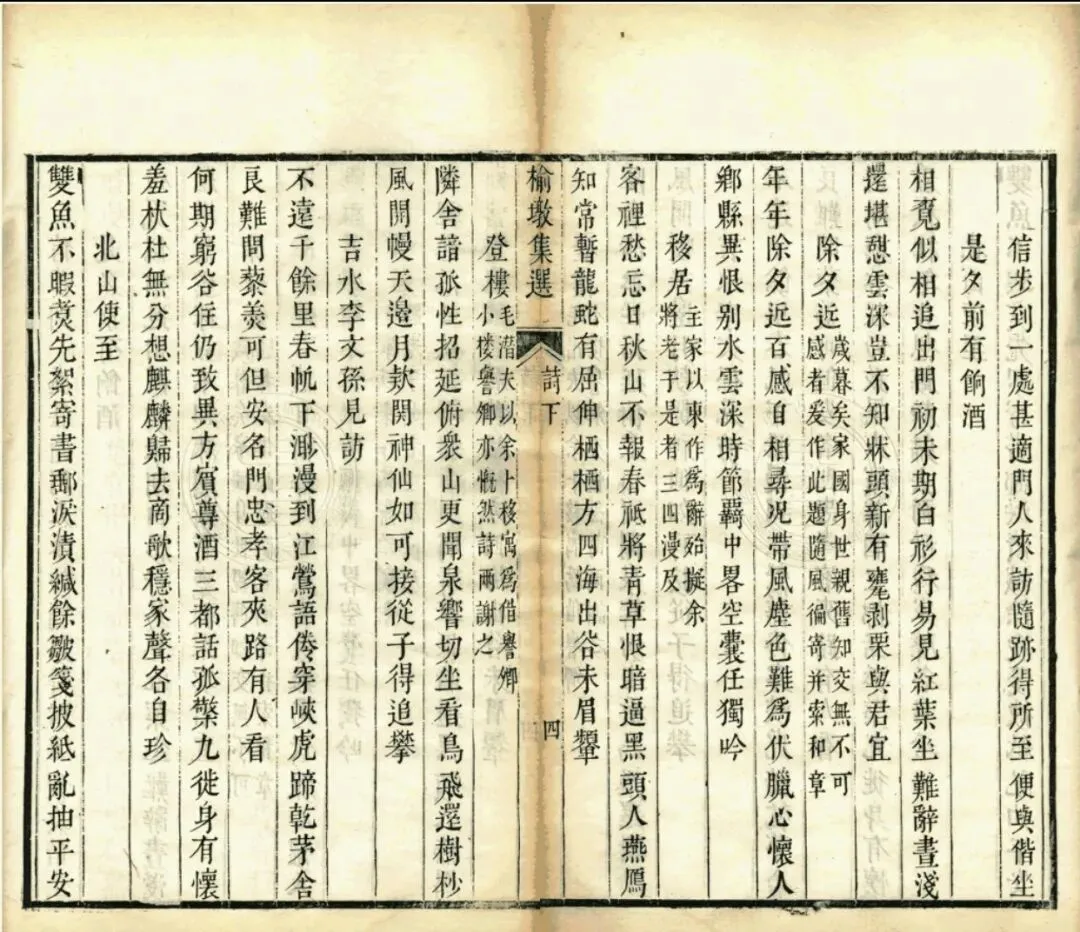 信步到一處甚適門人來訪隨跡得所至便與偕坐
是夕前有餉酒
相覓似相追出門初未期白衫行易見紅葉坐難辭晝淺
還堪憩雲深豈不知牀頭新有甕剥栗與君宜
除夕近歲暮矣家國身世親舊知交無不可
感者爰作此題隨風徧寄并索和章
年年除夕近百感自相尋況帶風塵色難爲伏臘心懷人
鄉縣異恨别水雲深時節羇中畧空囊任獨吟
移居主家以東作爲辭殆擬余
將老于是者三四漫及
客裡愁忘日秋山不報春祇將青草恨暗逼黑頭人燕鴈
知常暫龍蛇有屈伸栖栖方四海出谷未眉顰
榆墩集選
詩下
四
登樓毛濳夫以余卜移寓爲借譽卿
小樓譽卿亦慨然詩兩謝之
隣舍諳孤性招延俯衆山更聞泉響切坐看鳥飛還樹杪
風開幔天邊月欵関神仙如可接從子得追攀
吉水李文孫見訪
不遠千餘里春帆下瀰漫到江鶯語倦穿峽虎蹄乾茅舎
艮難問藜羙可但安名門忠孝客夾路有人看
何期窮谷住仍致異方賓尊酒三都話孤檠九徙身有懷
羞杕杜無分想麒麟歸去商歌穩家聲各自珍
北山使至
雙魚不暇煑先絮寄書郵淚漬緘餘皺箋披紙亂抽平安